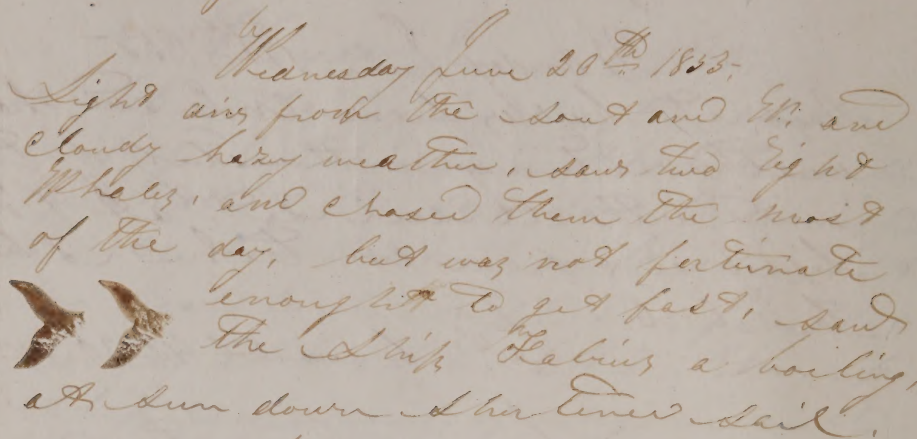 Wednesday June 20th 1853.
Light airs from the Sout and W. and
cloudy hazy weather, saw two Right
Whales, and chased them the most
of the day, but was not fortunate
enought to get fast, saw
the Ship Fabius a boiling,
at sun down shortened sail.